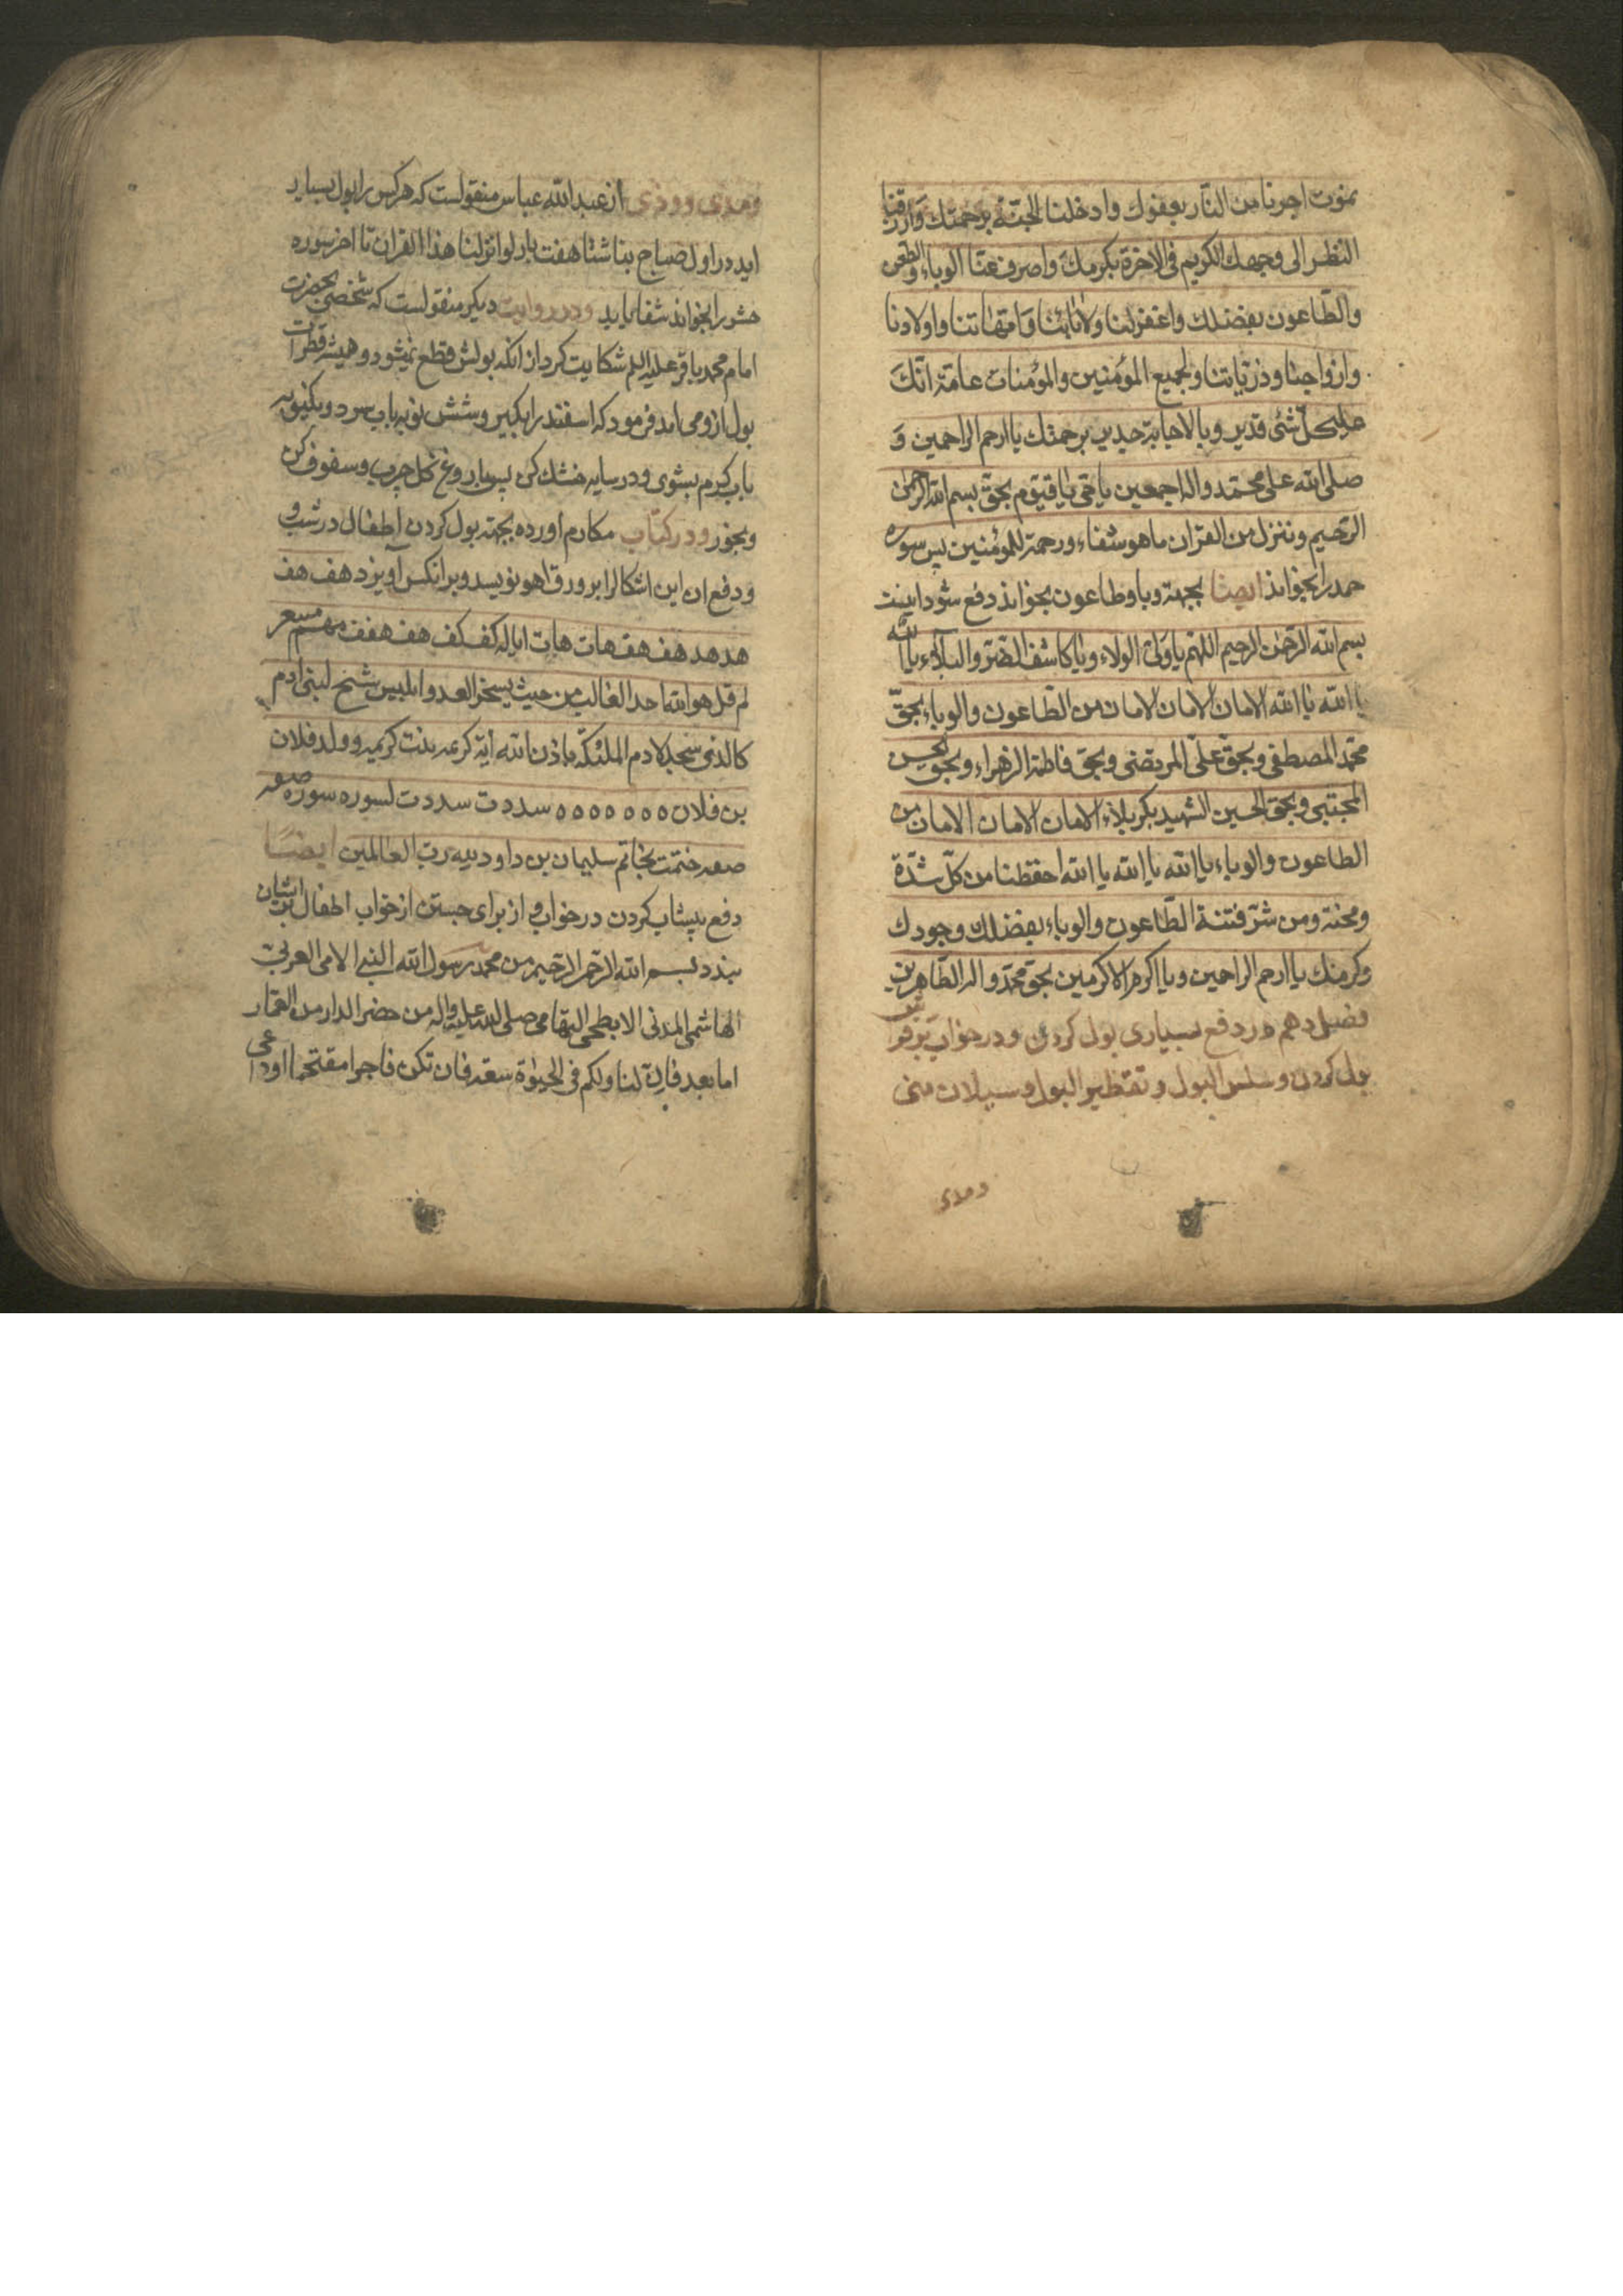 نموت اجرنا من النّار بعفوك وادخلنا الجنّة برحمتك وارزقنا
النظر الى وجهك الكريم فی الاخرة بكرمك واصرف عنّا الوباء والطعن
والطّاعون بفضلك واغفرلنا ولاٰبائنا وَامّهاتنا واولادنا
وازواجنا وذرّیاتنا ولجمیع المؤمنین والمؤمنات عامّة انّكَ
علیكلّ شئ قدیر وبالاجابة جدیر برحمتك یا ارحم الراحمین وَ
صلی الله علی محمّد واله اجمعین یا حی یا قیّوم بحقّ بسم الله الرحمٰن
الرّحیم وننزل من القرٰان ما هو شفاء ورحمة للمؤمنین پس سوره
حمد را بخواند ایضا بجهة وبا وطاعون بخواند دفع شود اینست
بسم الله الرّحمٰن الرحیم اللهّم یا ولیّ الولاء ویا كاشف الضّر والبلاء یا الله
یا الله یا الله الامان الامان الامان من الطّاعون والوباء بحقّ
محمّد المصطفی وبحقّ علیّ المرتضی وبحق فاطمة الزهراء وبحق الحسن
المجتبی وبحق الحسین الشهید بكربلاء الامان الامان الامان من
الطاعون والوباء یا الله یا الله یا الله احفظنا من كلّ شدّة
ومحنة ومن شرّ فتنة الطّاعون والوباء بفضلك وجودك
وكرمك یا ارحم الراحمین ویا اكرم الاكرمین بحق محمّد واله الطّاهرین
فصل دهم در دفع بسیاری بول كردن و در خواب
بول كردن و سلس البول و تقطیر البول و سیلان منی
ومذی
ومذی وودی از عبدالله عباس منقولست كه هر كس را بول بسیار
اید در اول صباح بناشتا هفت بار لوانزلنا هذا القران تا اخر سوره
حشر را بخواند شفا یابد ودر روایت دیكر منقولست كه شخصی بحضرت
امام محمد باقر علیه السلم شكایت كرد از انكه بولش قطع نمیشود وهمیشه قطرات
بول از ومی اید فرمود كه اسفند را بكیر وشش نوبه باب سرد ویكنوبه
باب كرم بشوی ودر سایه خشك كن پس بار وغن كل چرب وسفوف كن
وبخور ودر كتاب مكارم اورده بجهة بول كردن اطفال در شب و
ودفع ان این اشكالرا بر ورق اهو نویسد وبر انكس آویزد هف هف
هد هد هف هف هات هات كف كف هف هفف
لم قل هوالله احد الغالب من حیث یسخر العدو ابلیس لبنی ادم
كالذی سجد لادم الملئكه باذن الله ایة كریمه بنت كریمه وولد فلان
بن فلان ٥ ٥ ٥ ٥ ٥ ٥ ٥ سددت سددت لسوره سوره
ختمت بخاتم سلیمان بن داود رب العالمین ایضًا
دفع پیشاب كردن در خواب و از برای جستن از خواب اطفال بر ایشان
بندد بسم الله الرّحمن الرّحیم من محمد رسول الله النبی الامی العربی
الهاشمی المدنی الابطحی التهامی صلی الله علیه واله من حضر الدار من العمار
اما بعد فانّ لنا ولكم فی الحیوٰة سعة فان تكن فاجرا مقتحما او